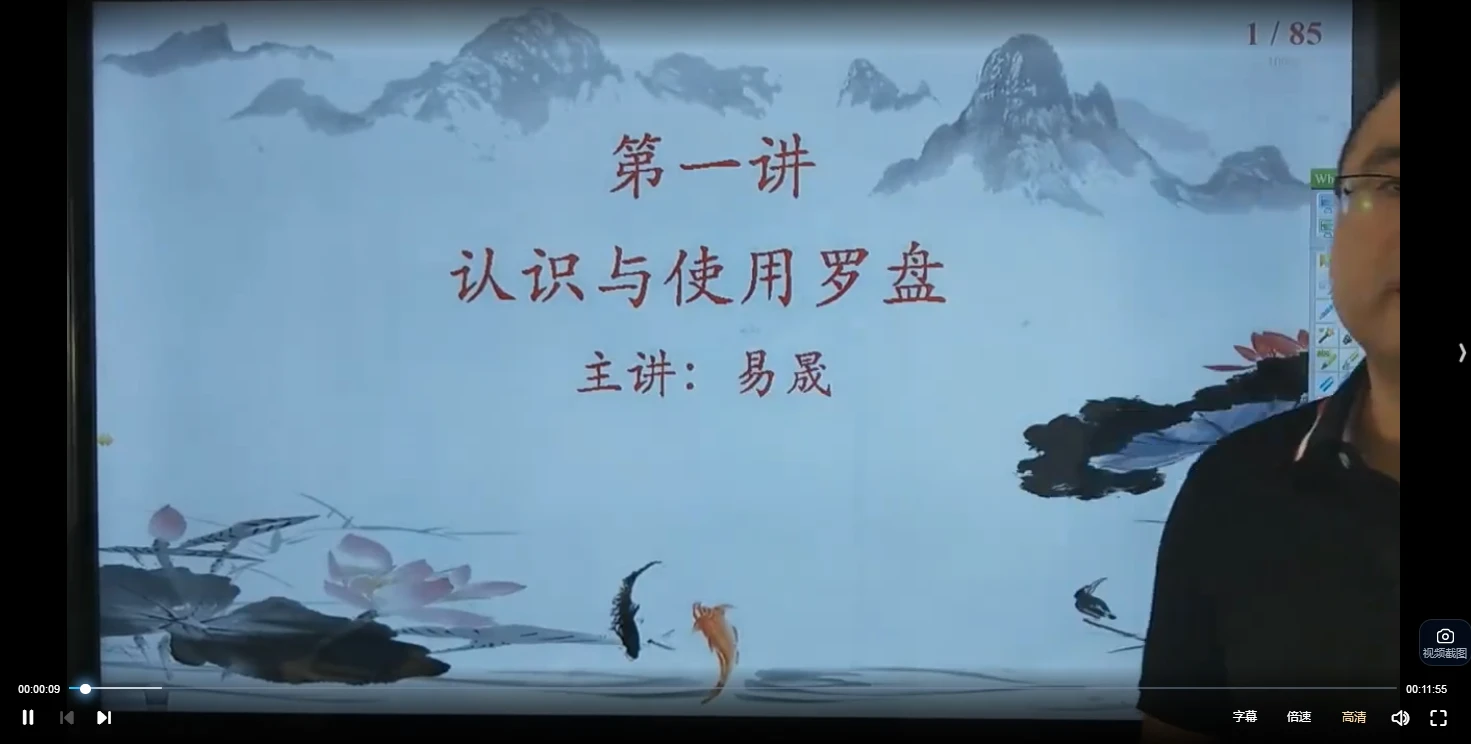 1 / 85
第一讲
认识与使用罗盘
主讲：易晟
Wh
视频截图
00:00:09
00:11:55
字幕
倍速
高清